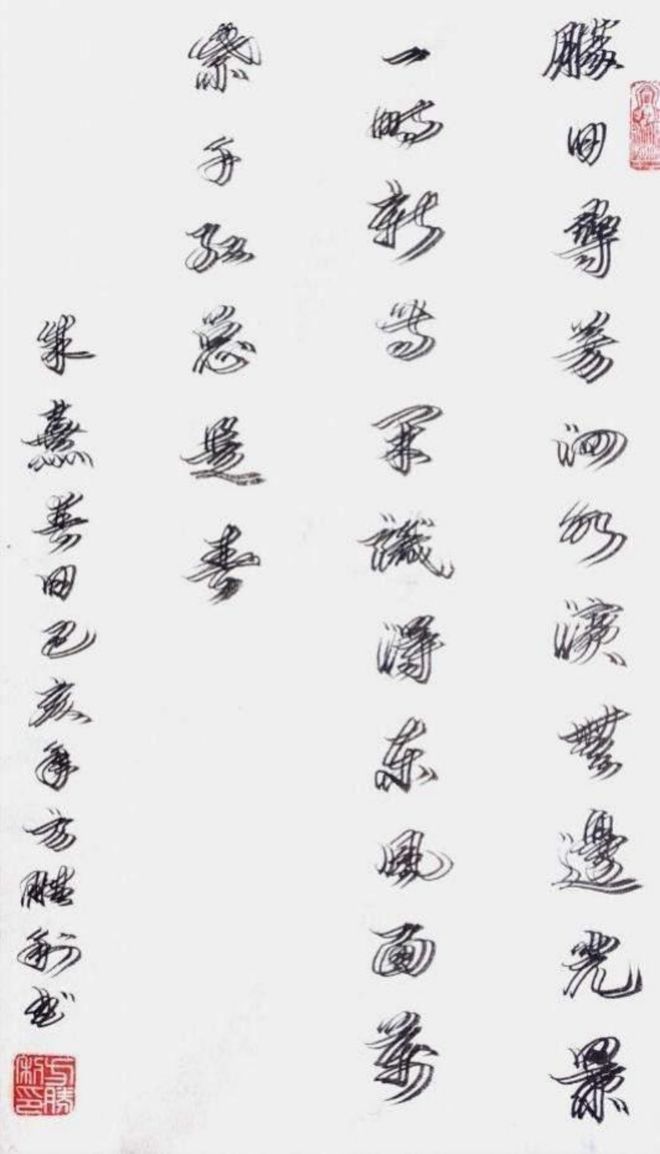 勝日尋芳泗水濱無邊光景
一時新等闲識得东風面萬
紫千紅總是春
朱熹春日己亥年方勝利书
方勝利印